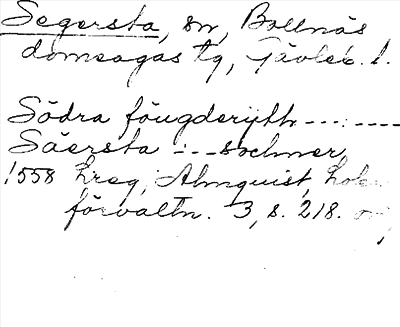 Segersta, sn, Bollnäs
domsagas tg, Gävleb. l.
Södra föugderijth ---:----
Säersta :-- sochner
1558 hreg; Almquist, Lok
förvaltn. 3, s. 218.